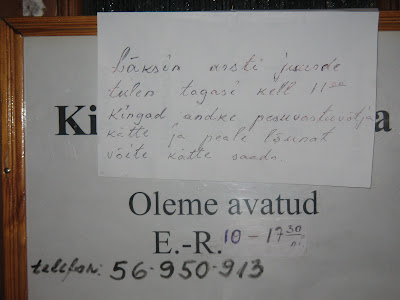 Läksin arsti juurde
tulen tagasi kell 11.00
Kingad andke pesuvastuvõtja
kätte ja peale lõunat
võite kätte saada.
Ki a
Oleme avatud
E.-R. 10 - 17 30
telefon: 56-950-913